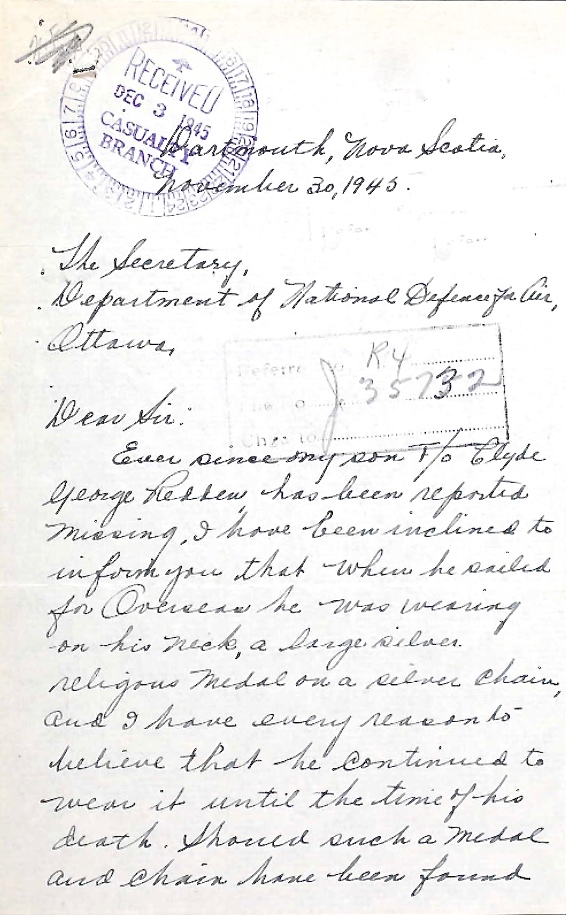 RECEIVED
DEC 3 1945
CASUALTY
BRANCH
Dartmouth, Nova Scotia,
November 30, 1945.
The Secretary,
Department of National Defence for Air,
Ottawa,
Referred to R4
File No. J 35732
Chgd to
Dear Sir:
Ever since my son F/O Clyde
George Redden, has been reported
missing, I have been inclined to
inform you that when he sailed
for Overseas he was wearing
on his neck, a large silver
religous medal on a silver chain,
and I have every reason to
believe that he continued to
wear it until the time of his
death. Should such a medal
and chain have been found